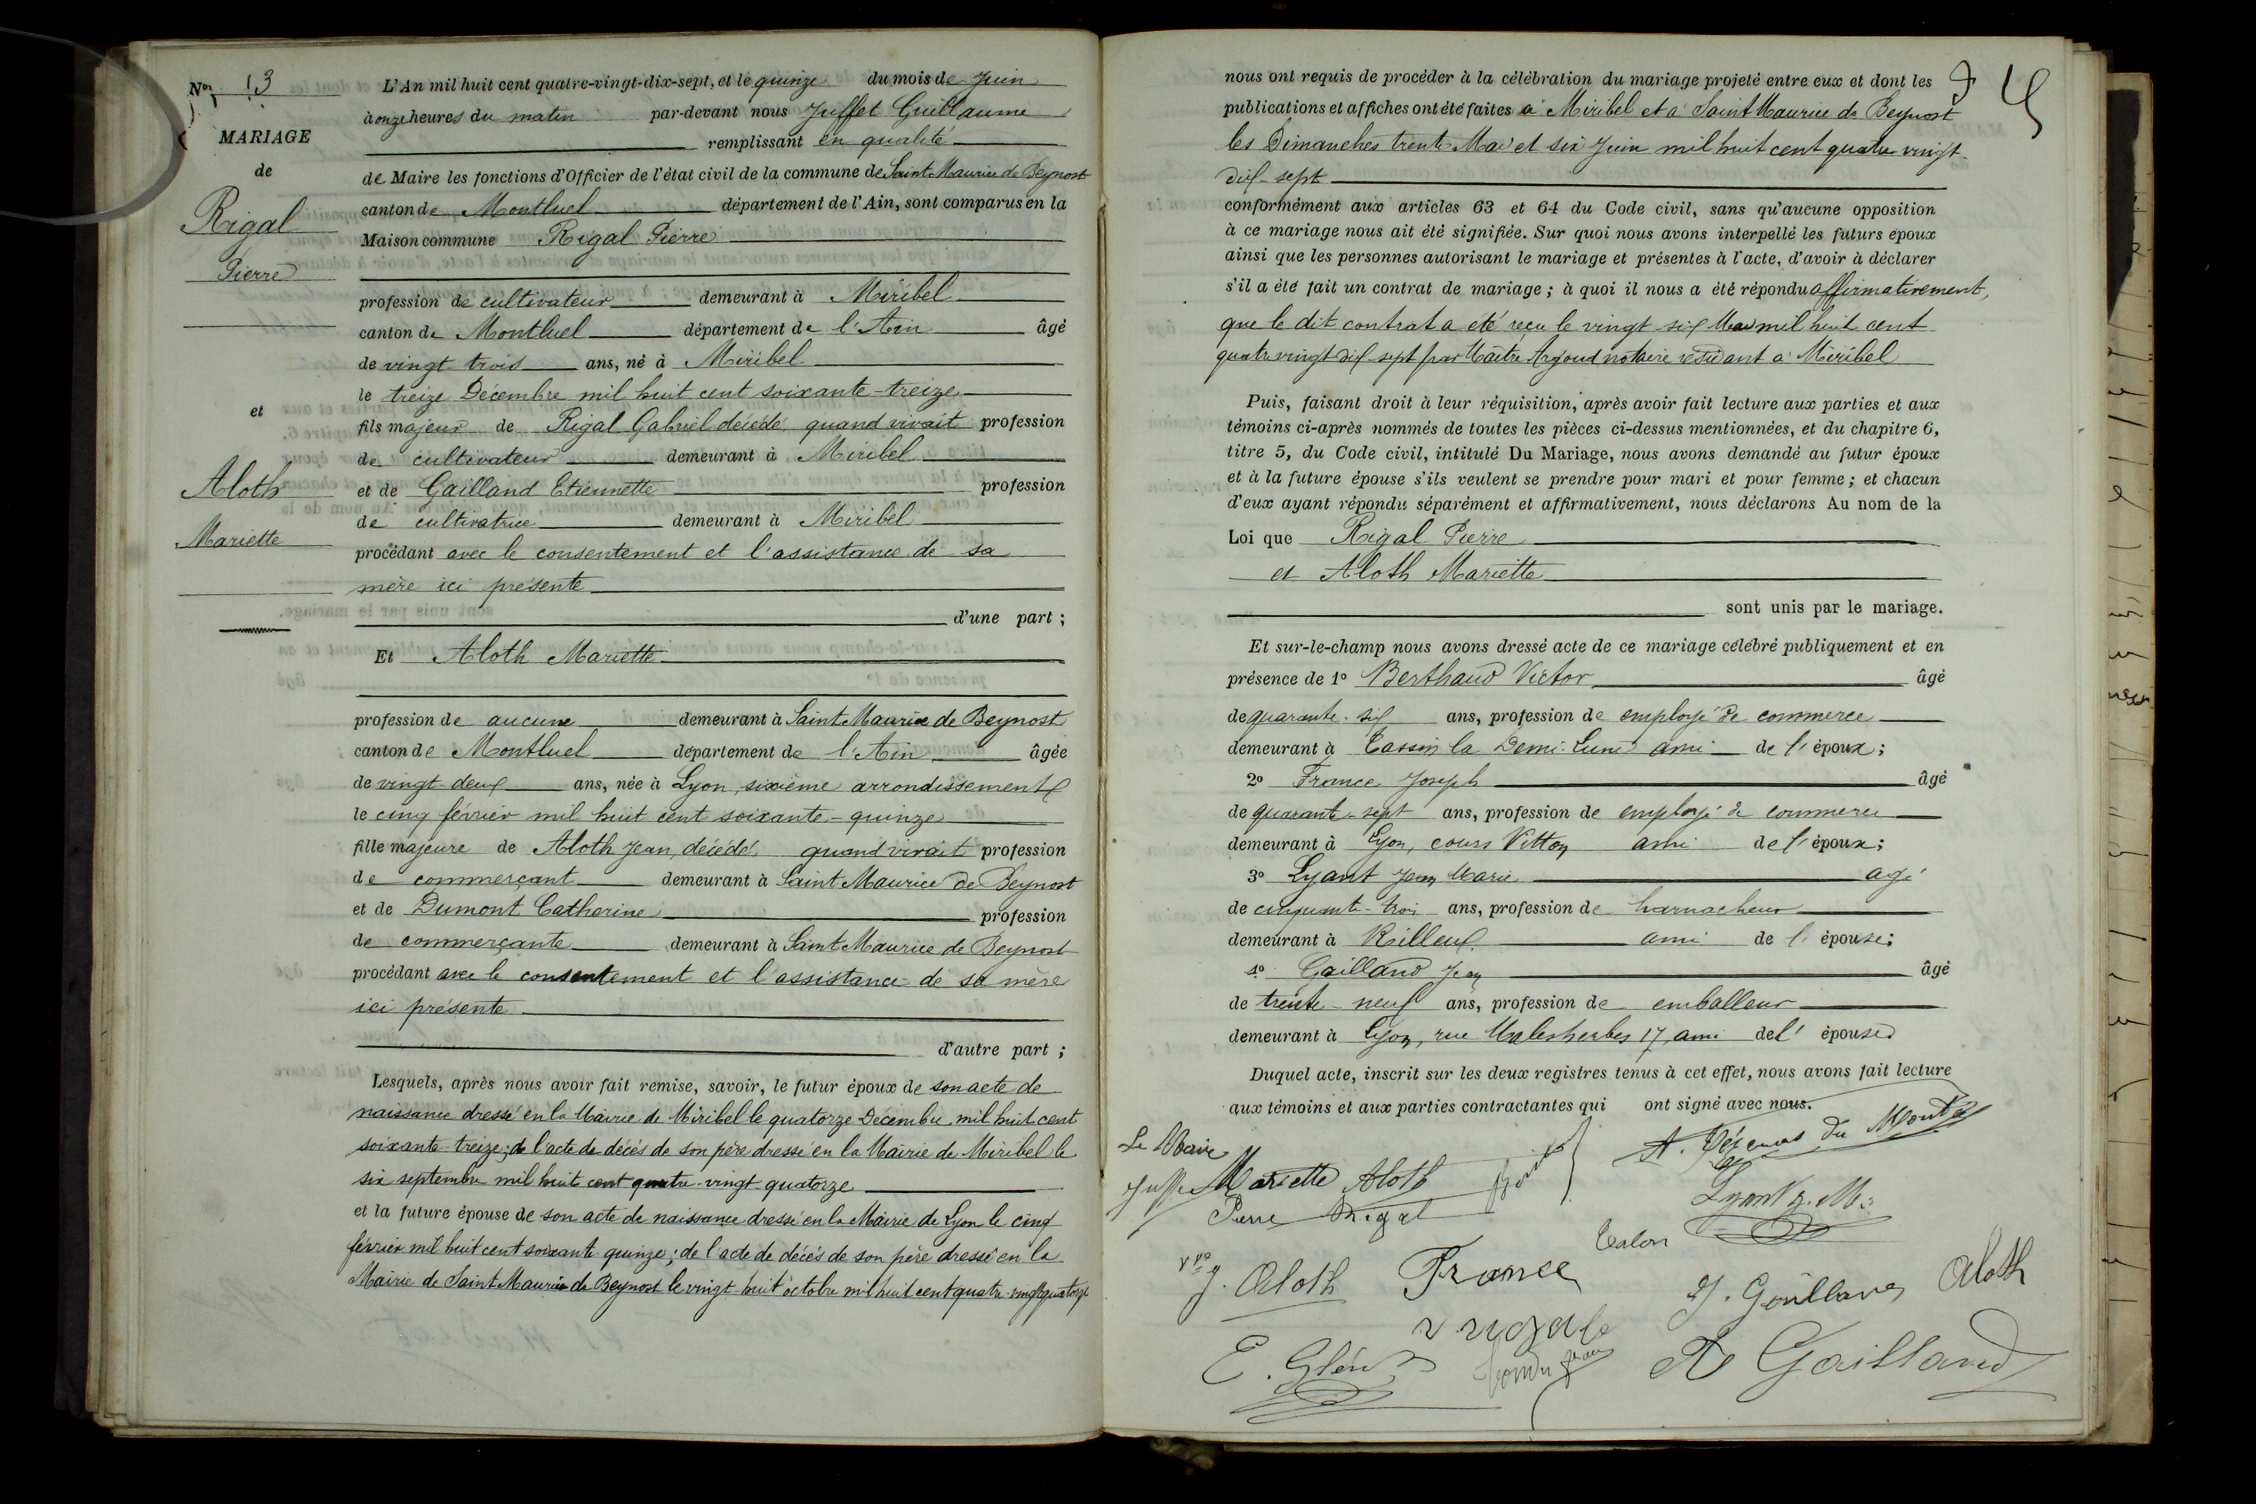 Nos 13
MARIAGE
de
Rigal
Pierre
et
Aloth
Mariette
L'An mil huit cent quatre-vingt-dix-sept, et le quinze du mois de Juin
à onze heures du matin par-devant nous Juffet Guillaume
remplissant en qualité
de Maire les fonctions d'Officier de l'état civil de la commune de Saint Maurice de Beynost
canton de Montluel département de l'Ain, sont comparus en la
Maison commune Rigal Pierre
profession de cultivateur demeurant à Miribel
canton de Montluel département de l'Ain âgé
de vingt trois ans, né à Miribel
le treize Décembre mil huit cent soixante-treize
fils majeur de Rigal Gabriel décédé, quand vivait profession
de cultivateur demeurant à Miribel
et de Gailland Etiennette profession
de cultivatrice demeurant à Miribel
procédant avec le consentement et l'assistance de sa
mère ici présente
d'une part ;
Et Aloth Mariette
profession de aucune demeurant à Saint Maurice de Beynost
canton de Montluel département de l'Ain âgée
de vingt-deux ans, née à Lyon, sixième arrondissement
le cinq février mil huit cent soixante-quinze
fille majeure de Aloth Jean, décédé, quand vivait profession
de commerçant demeurant à Saint Maurice de Beynost
et de Dumont Catherine profession
de commerçante demeurant à Saint Maurice de Beynost
procédant avec le consentement et l'assistance de sa mère
ici présente
d'autre part ;
Lesquels, après nous avoir fait remise, savoir, le futur époux de son acte de
naissance dressé en la Mairie de Miribel le quatorze Décembre mil huit cent
soixante-treize; de l'acte de décès de son père dressé en la Mairie de Miribel le
six septembre mil huit cent quatre-vingt-quatorze
et la future épouse de son acte de naissance dressé en la Mairie de Lyon le cinq
février mil huit cent soixante quinze; de l'acte de décès de son père dressé en la
Mairie de Saint Maurice de Beynost le vingt-huit octobre mil huit cent quatre-vingt quatorze
nous ont requis de procéder à la célébration du mariage projeté entre eux et dont les
publications et affiches ont été faites à Miribel et à Saint Maurice de Beynost
les Dimanches trente Mai et six Juin mil huit cent quatre vingt-
dix-sept
conformément aux articles 63 et 64 du Code civil, sans qu'aucune opposition
à ce mariage nous ait été signifiée. Sur quoi nous avons interpellé les futurs époux
ainsi que les personnes autorisant le mariage et présentes à l'acte, d'avoir à déclarer
s'il a été fait un contrat de mariage ; à quoi il nous a été répondu affirmativement,
que le dit contrat a été reçu le vingt six Mai mil huit cent
quatre vingt dix-sept par Maître Argoud notaire résidant à Miribel
Puis, faisant droit à leur réquisition, après avoir fait lecture aux parties et aux
témoins ci-après nommés de toutes les pièces ci-dessus mentionnées, et du chapitre 6,
titre 5, du Code civil, intitulé Du Mariage, nous avons demandé au futur époux
et à la future épouse s'ils veulent se prendre pour mari et pour femme ; et chacun
d'eux ayant répondu séparément et affirmativement, nous déclarons Au nom de la
Loi que Rigal Pierre
et Aloth Mariette
sont unis par le mariage.
Et sur-le-champ nous avons dressé acte de ce mariage célébré publiquement et en
présence de 1º Berthaud Victor âgé
de quarante-six ans, profession de employé de commerce
demeurant à Tassin la Demi-Lune ami de l'époux ;
2º France Joseph âgé
de quarante-sept ans, profession de employé de commerce
demeurant à Lyon, cours Vitton ami de l'époux ;
3º Lyant Jean Marie agé
de cinquante-trois ans, profession de harnacheur
demeurant à Rilleux ami de l'épouse;
4º Gailland Jean âgé
de trente-neuf ans, profession de emballeur
demeurant à Lyon, rue Malesherbes 17, ami de l'épouse
Duquel acte, inscrit sur les deux registres tenus à cet effet, nous avons fait lecture
aux témoins et aux parties contractantes qui ont signé avec nous.
Le Maire
Juffet Mariette Aloth
Pierre Rigal
Lyant J. M.
Talon
Vve J. Aloth France
J. Gailland Aloth
E. Glén
Gailland